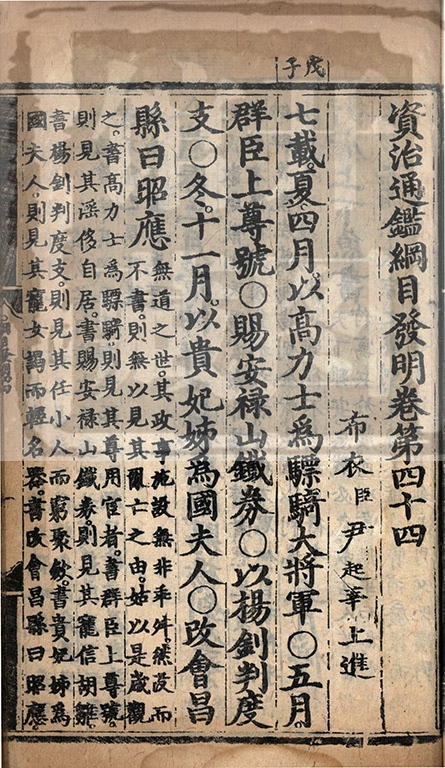 戊子
資治通鑑綱目發明卷第四十四
布衣臣尹起莘上進
七載。夏四月。以高力士爲驃騎大將軍〇五月。
群臣上尊號〇賜安祿山鐵券〇以楊釗判度
支〇冬。十一月。以貴妃姊為國夫人〇改會昌
縣曰昭應無道之世。其政事施設無非乖舛。然茂而
不書。則無以見其亂亡之由。姑以是歲觀
之。書高力士爲驃騎則見其尊用宦者。書群臣上尊號。
則見其淫侈自居。書賜安祿山鐵券。則見其寵信胡雛。
書楊釗判度支。則見其任小人而窮聚斂。書貴妃姊為
國夫人。則見其寵女謁而輕名器。書改會昌縣曰昭應。